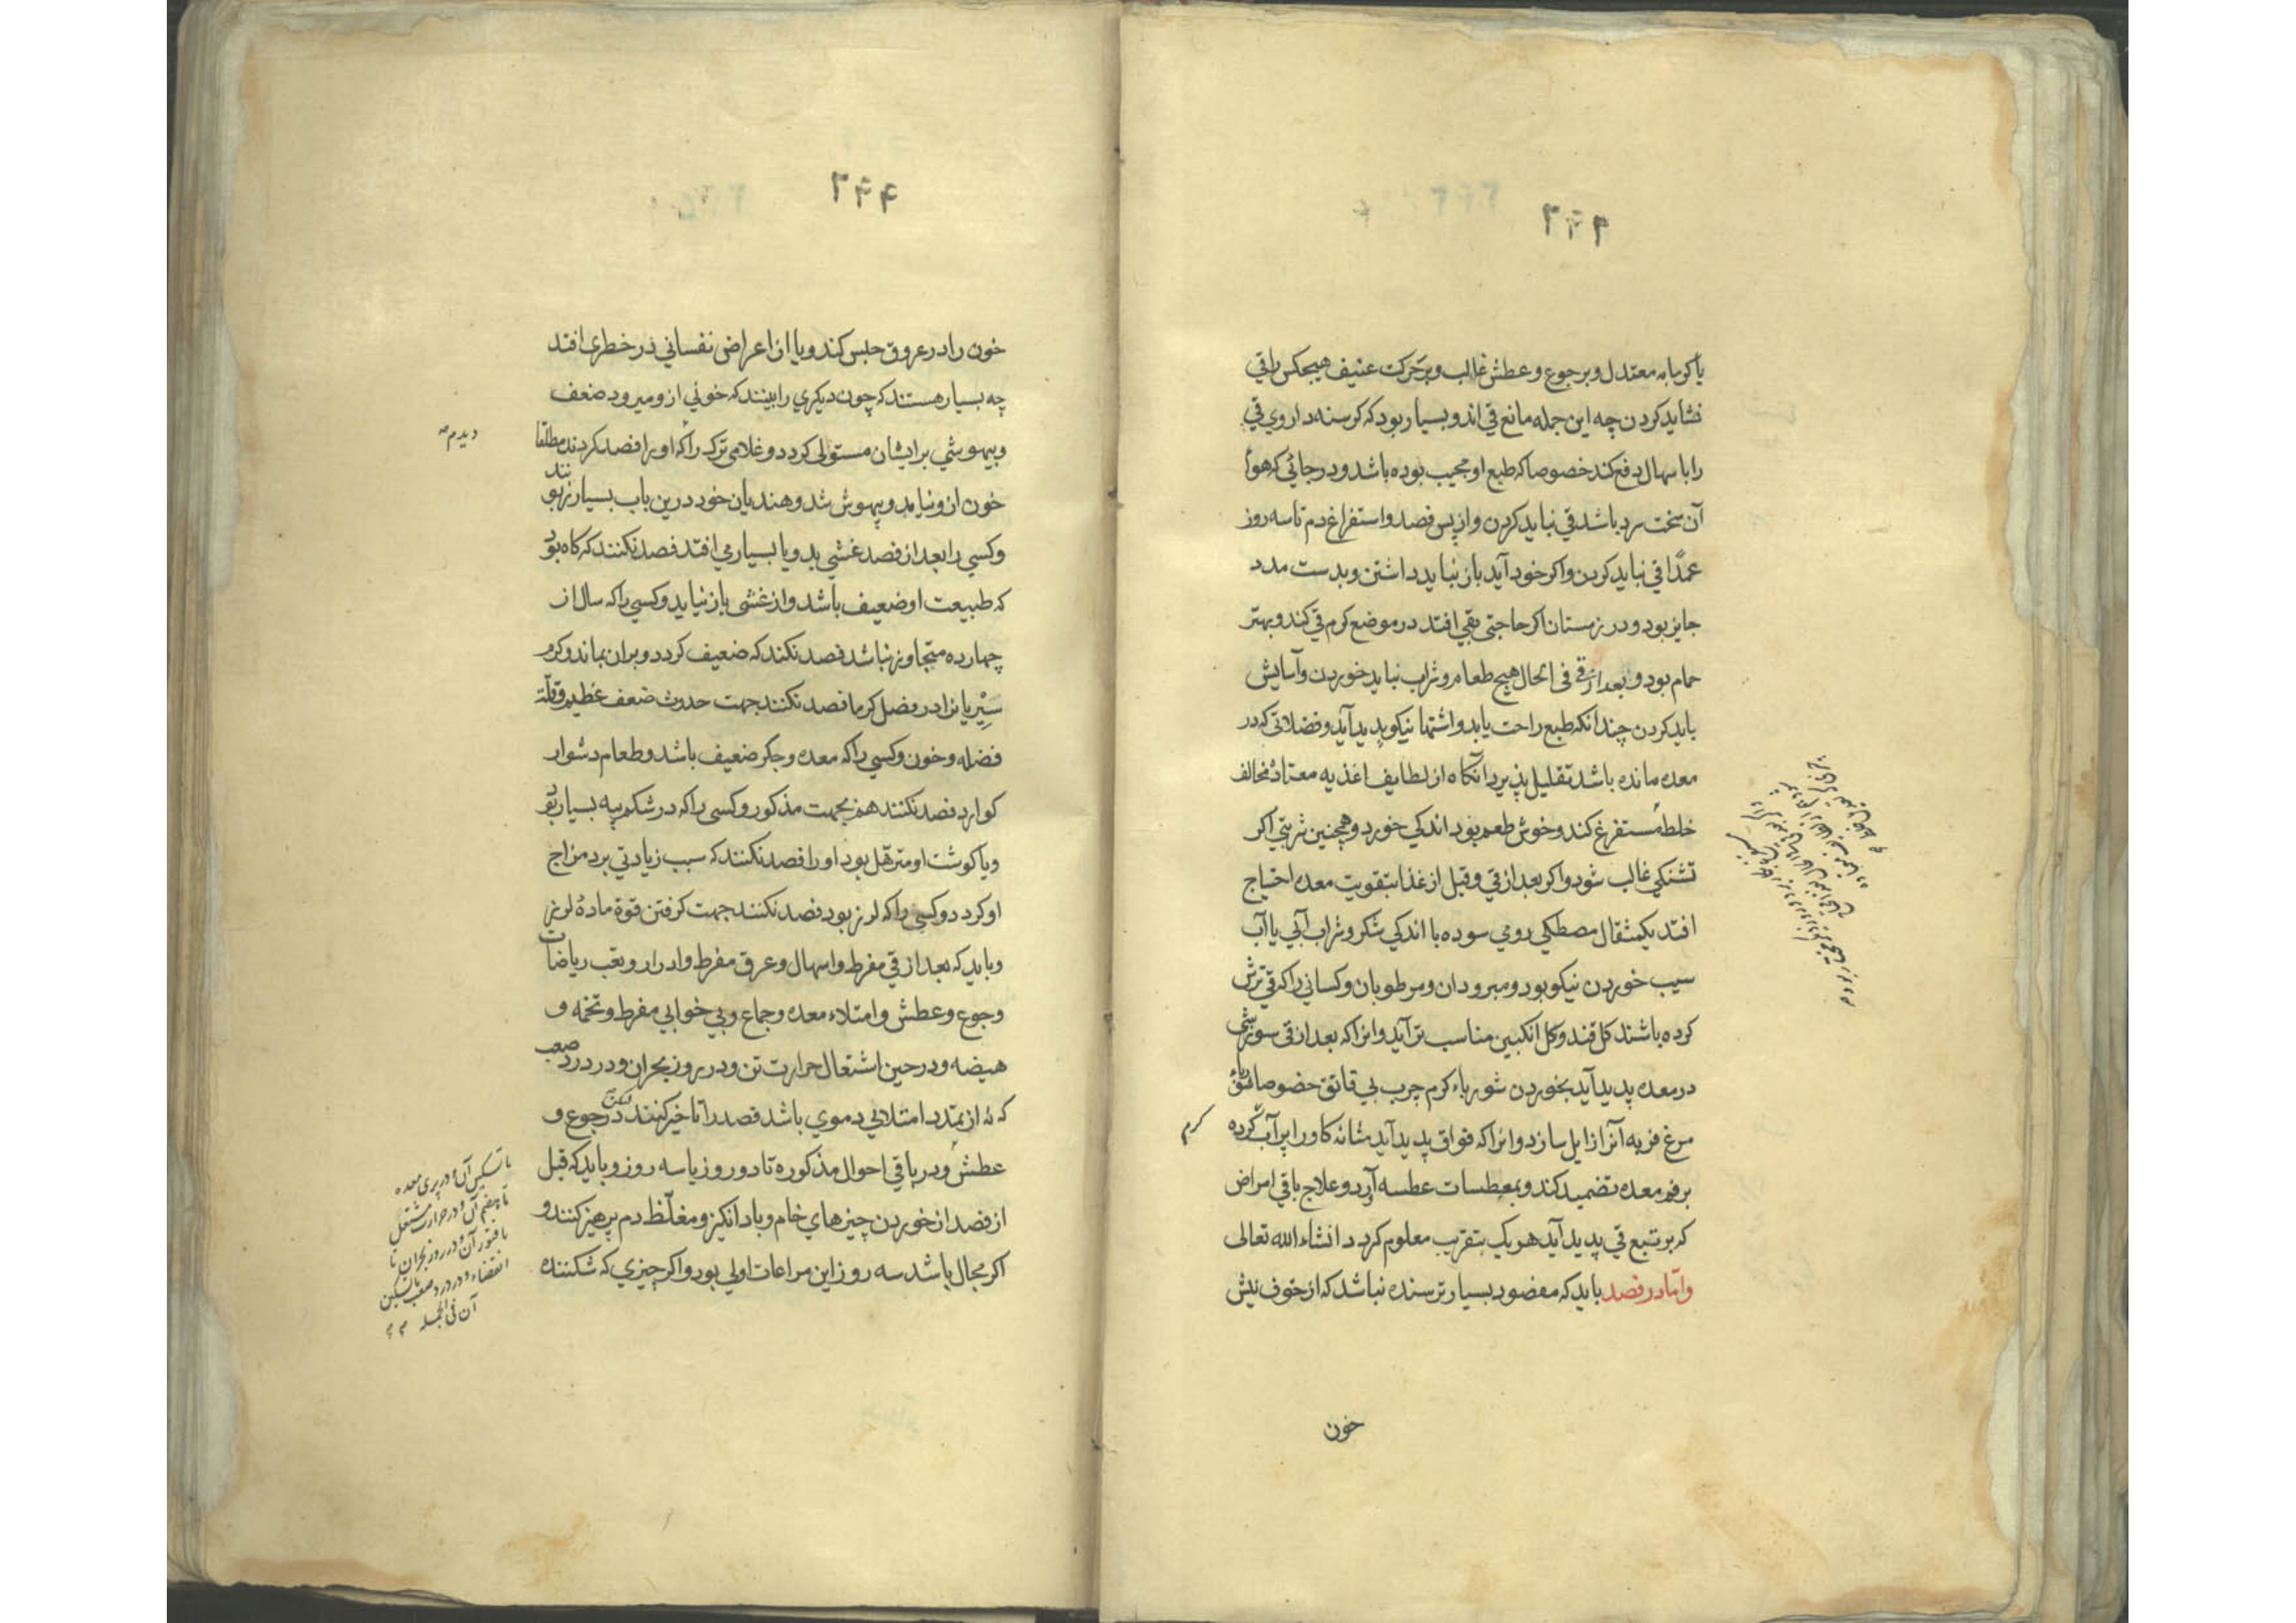 یا کرمابه معتدل و بر جوع و عطش غالب و بر حرکت عنیف هیچکس را قی
نشاید کردن چه این جمله مانع قی اند و بسیار بود که کرسنه داروی قی
را با سهال دفع کند خصوصا که طبع او مجیب بوده باشد و در جائی که هواء
آن سخت سرد باشد قی نباید کردن و از پس فصد و استفراغ دم تا سه روز
عمدًا قی نباید کردن و اکر خود آید باز نباید داشتن و بدست مدد
جایز بود و در زمستان اکر حاجتی بقی افتد در موضع کرم قی کند و بهتر
حمام بود و بعد از قی فی الحال هیچ طعام و شراب نباید خوردن و آسایش
باید کردن چندانکه طبع راحت یابد و اشتها نیکو پدید آید و فضلاتی که در
معده مانده باشد تقلیل پذیرد آنکاه از لطایف اغذیه معتاد مخالف
خلط مستفرغ کند و خوش طعم بود اندکی خورد و همچنین شربتی اکر
تشنکی غالب شود و اکر بعد از قی و قبل از غذا بتقویت معده احتیاج
افتد یکمثقال مصطکی رومی سوده با اندکی شکر و شراب آبی یا آب
سیب خوردن نیکو بود و مبرودان و مرطوبان و کسانی را که قی ترش
کرده باشند کل قند و کل انکبین مناسب تر آید و انرا که بعد از قی سوزشی
در معده پدید آید بخوردن شورباء کرم چرب بی قاتق خصوصا مرق
مرغ فربه آنرا زایل سازد و انرا که فواق پدید آید مثانه کاو را پر آب کرده
کرم
بر فم معده تضمید کند و بمعطسات عطسه آرد و علاج باقی امراض
که بر تبع قی پدید آید هر یک بتقریب معلوم کردد انشاء الله تعالی
و اما در فصد باید که مفصود بسیار ترسنده نباشد که از خوف نیش
خون
خون را در عروق حبس کند و یا از اعراض نفسانی در خطری افتد
چه بسیار هستند که چون دیکری را بینند که خونی از و میرود ضعف
و بیهوشی بر ایشان مستولی کردد و غلامی ترک را که او را فصد کردند مطلقا
دیدم
خون از و نیامد و بیهوش شد و هندیان خود درین باب بسیار زبونند
و کسی را بعد از فصد غشی بد و یا بسیار می افتد فصد نکنند که کاه بود
که طبیعت او ضعیف باشد و از غشی باز نیاید و کسی را که سال از
چهارده متجاوز نباشد فصد نکنند که ضعیف کردد و بران بماند و کرم
در فصل کرما فصد نکنند جهت حدوث ضعف عظیم و قلة
فضله و خون و کسی را که معده و جکر ضعیف باشد و طعام دشوار
کوارد فصد نکنند هم بجهت مذکور و کسی را که در شکم پیه بسیار بود
و یا کوشت او مترهل بود او را فصد نکنند که سبب زیادتی برد مزاج
او کردد و کسی را که لرز بود فصد نکنند جهت کرفتن قوة مادهٔ لرز
و باید که بعد از قی مفرط و اسهال و عرق مفرط و ادرار و تعب ریاضات
و جوع و عطش و امتلاء معده و جماع و بی خوابی مفرط و تخمه و
هیضه و در حین اشتعال حرارت تن و در روز بحران و در درد صعب
که نه از تمدد امتلائی دموی باشد فصد را تاخیر کنند لکن در جوع و
عطش و در باقی احوال مذکوره تا دو روز یا سه روز و باید که قبل
از فصد از خوردن چیزهای خام و باد انکیز و مغلّظ دم پرهیز کنند و
اکر مجال باشد سه روز این مراعات اولی بود و اکر چیزی که شکننده
تا تسکین آن و در پری معده
تا هضم آن و در حرارت مشتعل
تا فتور آن و در روز بحران تا
انقضاء و در درد صعب تا تسکین
آن فی الجمله